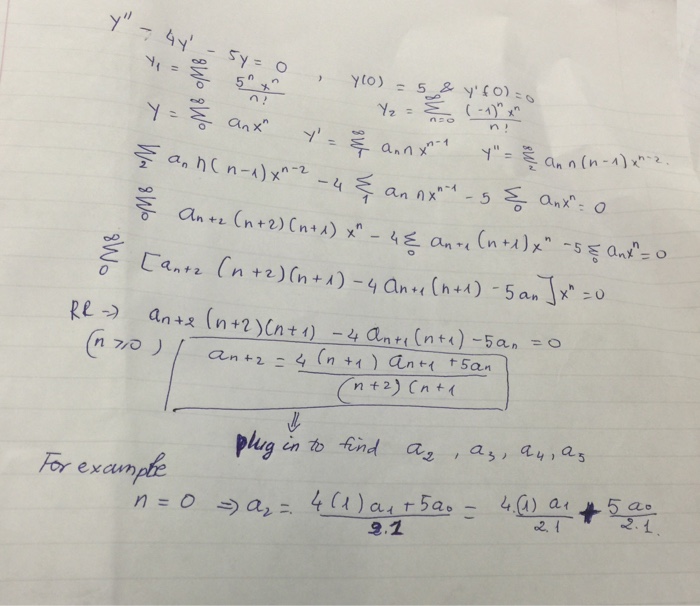 y'' - 4y' - 5y = 0 , y(0) = 5 & y'(0) = 0
y₁ = ∞Σ0 5ⁿxⁿ/n! y₂ = ∞Σn=0 (-1)ⁿxⁿ/n!
y = ∞Σ0 aₙxⁿ y' = ∞Σ1 aₙnxⁿ⁻¹ y'' = ∞Σ2 aₙn(n-1)xⁿ⁻².
∞Σ2 aₙn(n-1)xⁿ⁻² - 4 Σ1 aₙnxⁿ⁻¹ - 5 Σ0 aₙxⁿ = 0
∞Σ0 aₙ₊₂(n+2)(n+1)xⁿ - 4Σ0 aₙ₊₁(n+1)xⁿ - 5Σ0 aₙxⁿ = 0
∞Σ0 [aₙ₊₂(n+2)(n+1) - 4aₙ₊₁(n+1) - 5aₙ]xⁿ = 0
RR ⇒ aₙ₊₂(n+2)(n+1) - 4aₙ₊₁(n+1) - 5aₙ = 0
(n ≥ 0) aₙ₊₂ = 4(n+1)aₙ₊₁ + 5aₙ / (n+2)(n+1
⇓
plug in to find a₂, a₃, a₄, a₅
For example
n = 0 ⇒ a₂ = 4(1)a₁ + 5a₀ / 2.1 = 4.(1)a₁ / 2.1 + 5a₀ / 2.1.